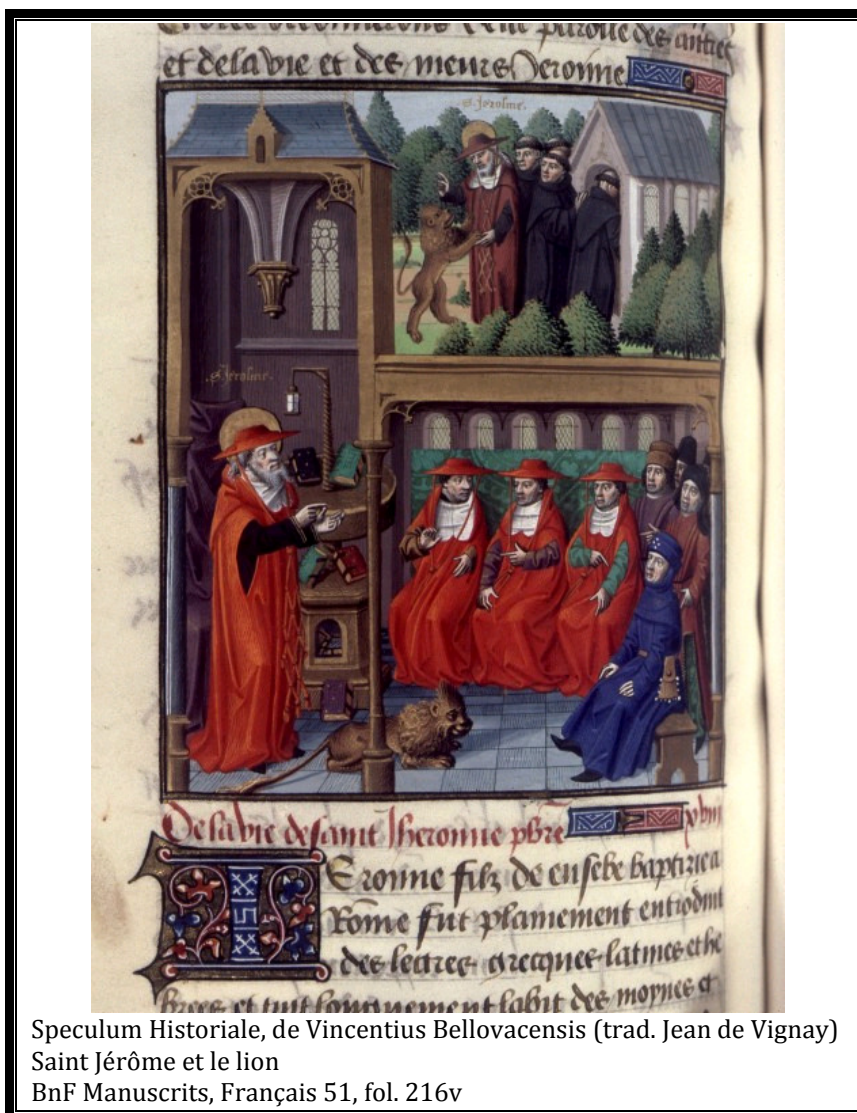 parolle des autres
et de la vie et des meurs Jeronne
S. Jerosme.
S. Jerosme.
De la vie de saint Jheronne pbre xviii
IEronne filz de eusebe baptizie a
Romme fut plainement entroduit
des lectres grecques latines et he
brees et tint des moynes et
Speculum Historiale, de Vincentius Bellovacensis (trad. Jean de Vignay)
Saint Jérôme et le lion
BnF Manuscrits, Français 51, fol. 216v